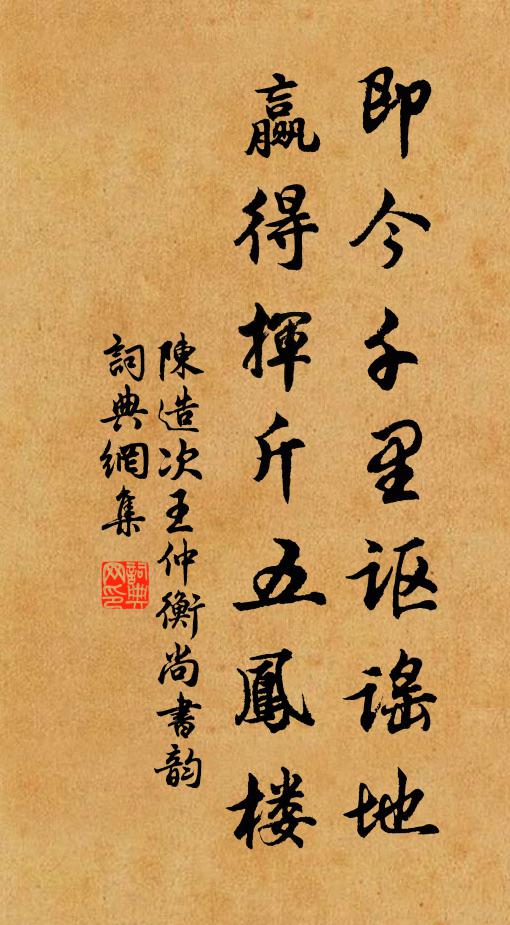 即今千里讴謡地
赢得揮斤五鳳楼
陳造次王仲衡尚書韵
詞典網集
詞典網印